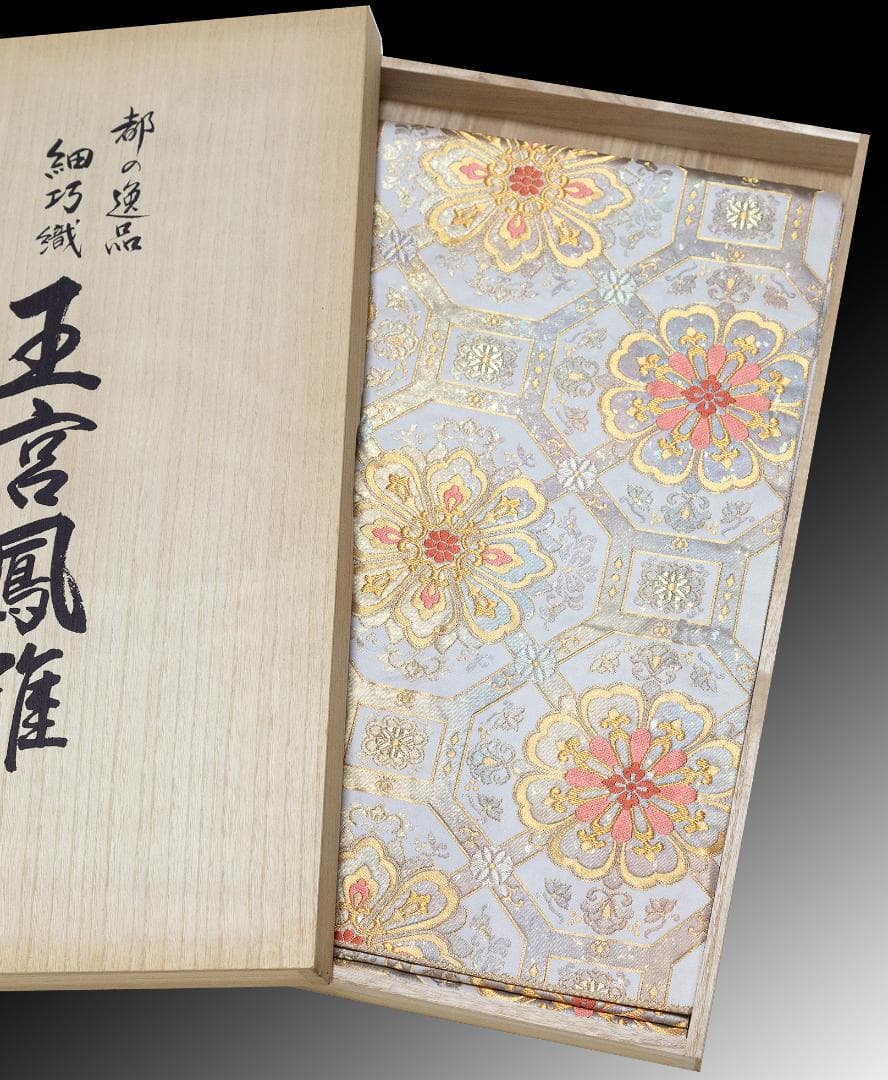 都の逸品
細巧織
王宮鳳雅